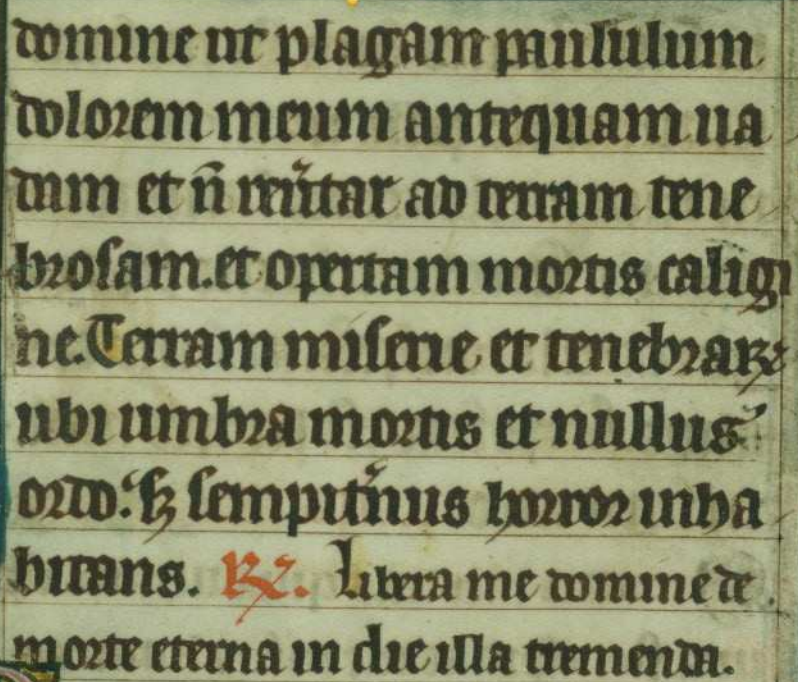 domine ut plagam paululum
dolorem meum antequam ua
dam et n̄ reũtar ad terram tene
brosam. et opertam mortis caligi
ne. Terram miserie et tenebraꝝ
ubi umbra mortis et nullus
ordo: sꝫ sempit̃nus horror inha
bitans. ℟. Libera me domine de
morte eterna in die illa tremenda.